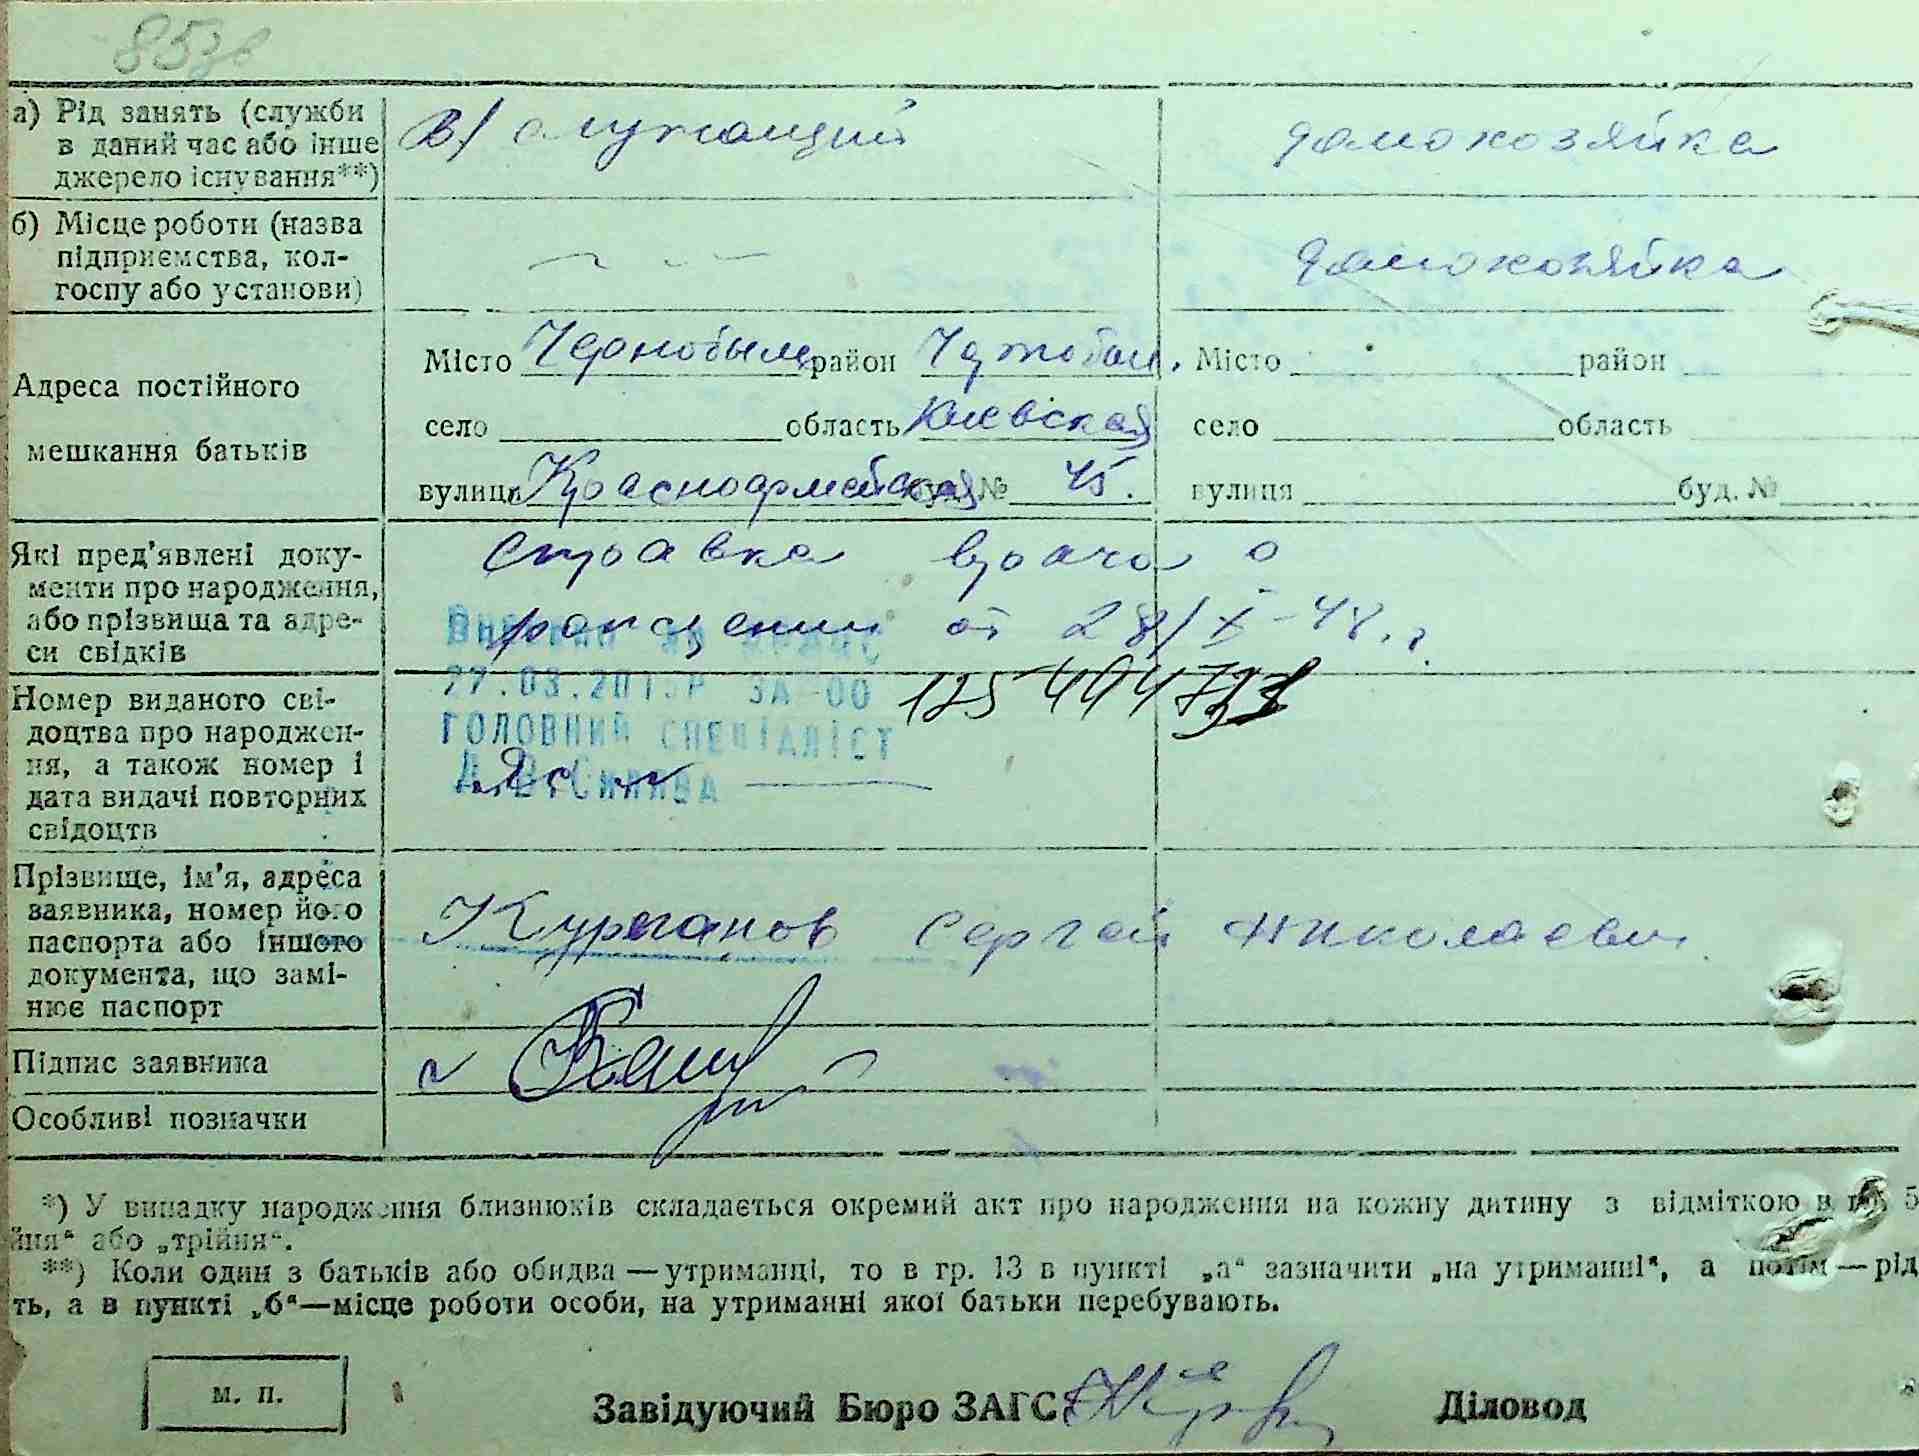 85зв
а) Рід занять (служби в даний час або інше джерело існування**)
в/ служащий домохозяйка
б) Місце роботи (назва підприємства, колгоспу або установи)
домохозяйка
Адреса постійного мешкання батьків
Місто Чернобыль район Місто район
село область Киевская село область
вулиця Красноармейская буд. № 45. вулиця буд. №
Які пред'явлені документи про народження, або прізвища та адреси свідків
Справка врача о
рождении от 28/X-48 г.
Номер виданого свідоцтва про народження, а також номер і дата видачі повторних свідоцтв
ГОЛОВНИЙ СПЕЦІАЛІСТ
Прізвище, ім'я, адреса заявника, номер його паспорта або іншого документа, що замінює паспорт
Курганов Сергей Николаевич
Підпис заявника
Особливі позначки
*) У випадку народження близнюків складається окремий акт про народження на кожну дитину з відміткою в гр. 5
йня" або „трійня".
**) Коли один з батьків або обидва — утриманці, то в гр. 13 в пункті „а" зазначити „на утриманні", а потім — рід
ть, а в пункті „б"—місце роботи особи, на утриманні якої батьки перебувають.
м. п.
Завідуючий Бюро ЗАГС Діловод